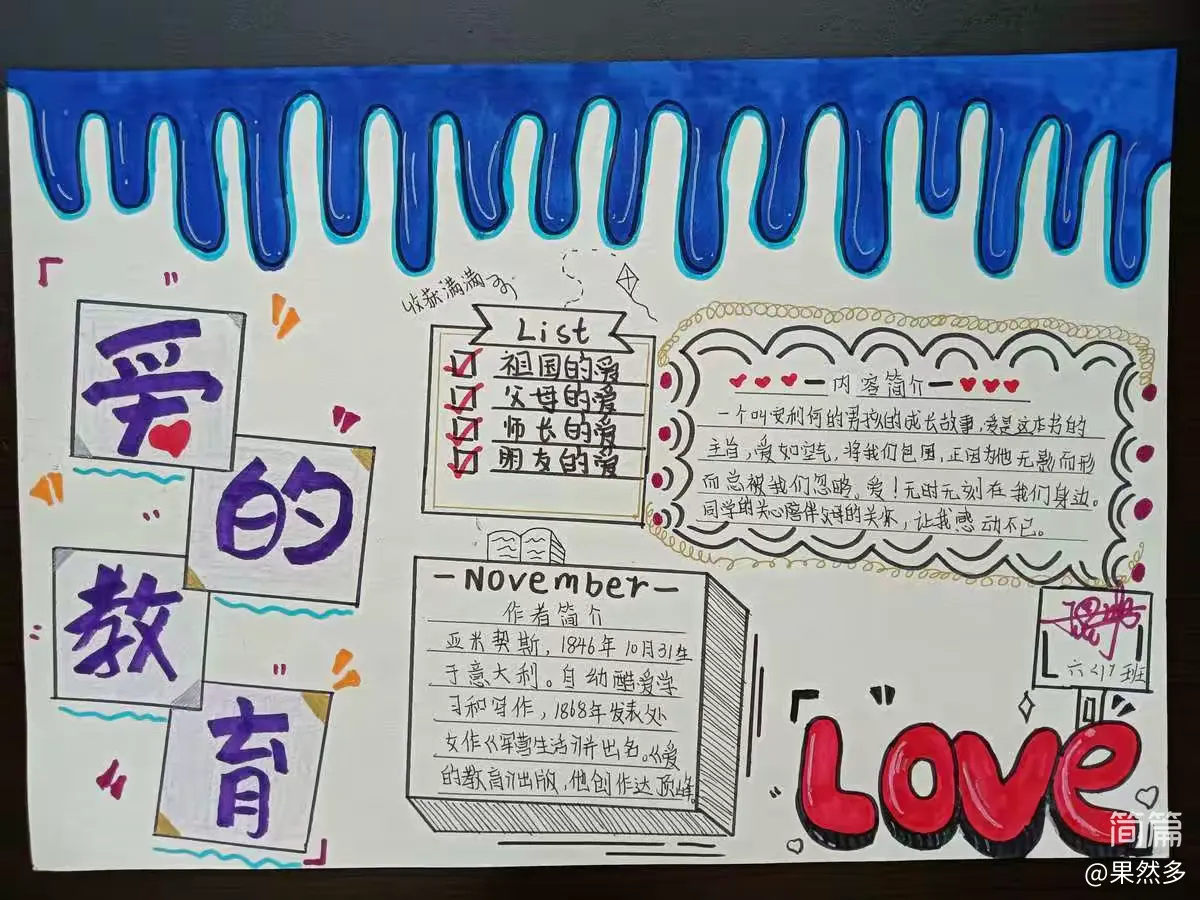 爱
的
教
育
收获满满
List
祖国的爱
父母的爱
师长的爱
朋友的爱
内容简介
一个叫安利何的男孩的成长故事,爱是这本书的
主旨,爱如空气,将我们包围,正因为他无影而形
而总被我们忽略。爱!无时无刻在我们身边。
同学的关心陪伴父母的关怀,让我感动不已。
-November-
作者简介
亚米契斯,1846年10月31生
于意大利。自幼酷爱学
习和写作,1868年发表处
女作《军营生活》并出名。《爱
的教育》出版,他创作达顶峰。
六<1>班
LOVe
简篇
@果然多